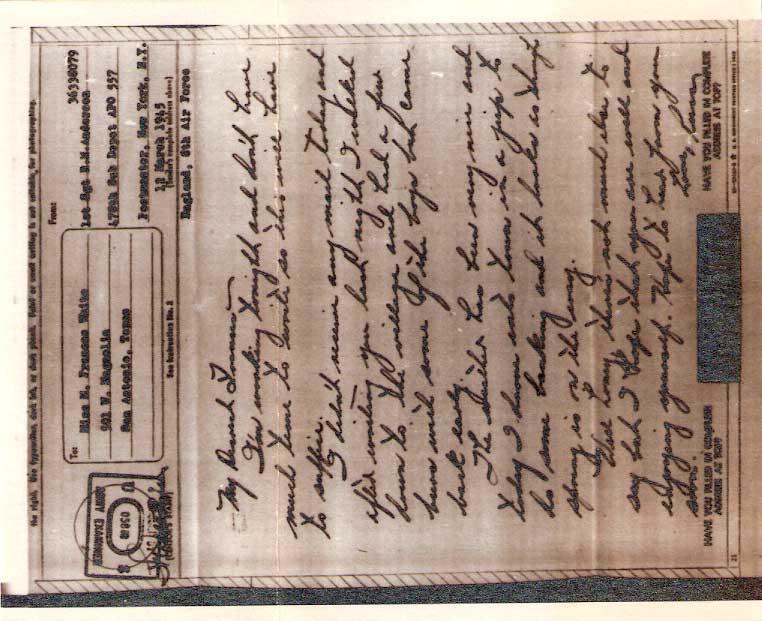 the right. Use typewriter, dark ink, or dark pencil. Faint or small writing is not suitable for photographing.
To:
Miss E. Frances Waite
901 W. Magnolia
San Antonio, Texas
From:
36338079
1st Sgt R.M.Anderson
478th Sub Depot APO 557
Postmaster, New York, N.Y.
12 March 1945
(Sender's complete address above)
England, 8th Air Force
ARMY EXAMINER
(CENSOR'S STAMP)
See Instruction No. 2
My Dearest Frances
I'm working tonight and don't have
much time to write so this will have
to suffice.
I didn't receive any mail today and
after writing you last night I walked
down to the village and had a few
beers with some of the boys but came
back early.
The weather has been very nice and
today I drove into town in a jeep to
do some banking and it looks as though
spring is on the way.
Well honey there's not much else to
say but I hope that you are well and
enjoying yourself. Hope to hear from you
soon.
Love,
HAVE YOU FILLED IN COMPLETE
ADDRESS AT TOP?
HAVE YOU FILLED IN COMPLETE
ADDRESS AT TOP?